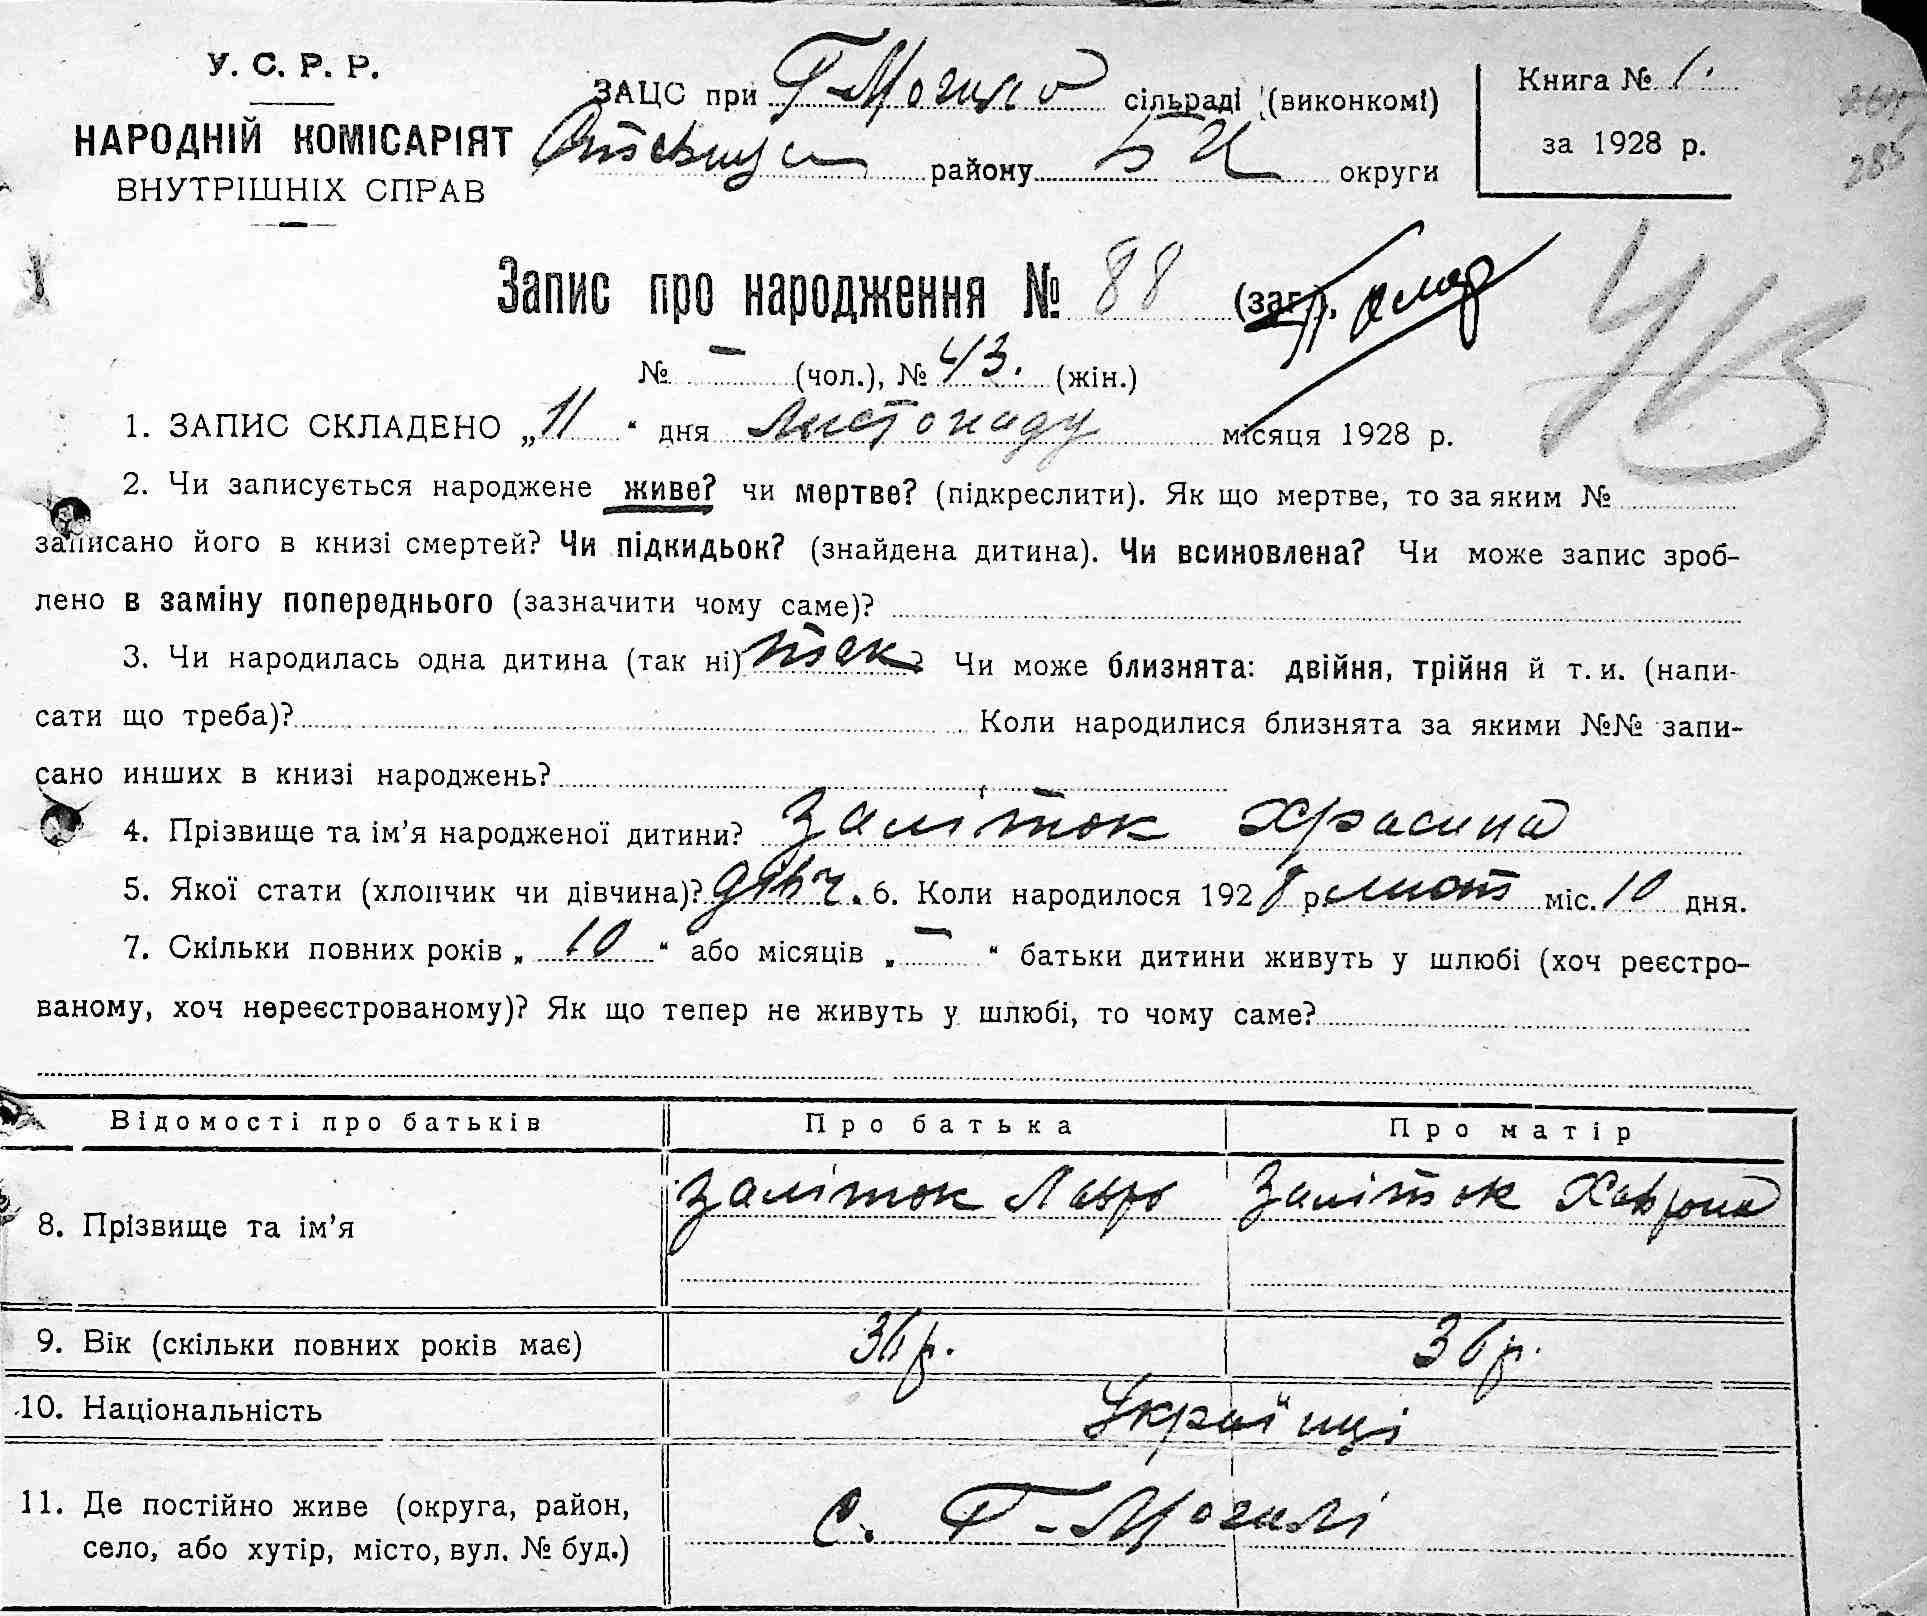 У. С. Р. Р.
НАРОДНІЙ КОМІСАРІЯТ
ВНУТРІШНІХ СПРАВ
ЗАЦС при Г-Могила сільраді (виконкомі)
району БЦ округи
Книга № 1.
за 1928 р.
Запис про народження № 88 (заг.).
№ – (чол.), № 43. (жін.)
1. ЗАПИС СКЛАДЕНО „11“ дня Листопаду місяця 1928 р.
2. Чи записується народжене живе? чи мертве? (підкреслити). Як що мертве, то за яким №
записано його в книзі смертей? Чи підкидьок? (знайдена дитина). Чи всиновлена? Чи може запис зроб-
лено в заміну попереднього (зазначити чому саме)?
3. Чи народилась одна дитина (так ні) так? Чи може близнята: двійня, трійня й т. и. (напи-
сати що треба)? Коли народилися близнята за якими №№ запи-
сано инших в книзі народжень?
4. Прізвище та ім’я народженої дитини? Заліток
5. Якої стати (хлопчик чи дівчина)? дівч. 6. Коли народилося 1928 р. лист міс. 10 дня.
7. Скільки повних років „10“ або місяців „–“ батьки дитини живуть у шлюбі (хоч реєстро-
ваному, хоч нереєстрованому)? Як що тепер не живуть у шлюбі, то чому саме?
Відомості про батьків Про батька Про матір
8. Прізвище та ім’я Заліток Лавро Заліток Хавроня
9. Вік (скільки повних років має) 36 р. 36 р.
10. Національність Українці
11. Де постійно живе (округа, район,
село, або хутір, місто, вул. № буд.) с. Г-Могилі